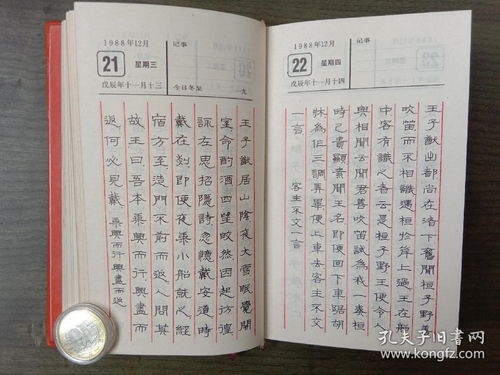 1988年12月
记事
21
星期三
戊辰年十一月十三
今日冬至
一九
王子猷居山陰夜大雪眠覺開
室命酌酒四望皎然因起彷徨
詠左思招隱詩忽憶戴安道時
戴在剡即便夜乘小船就之經
宿方至造門不前而返人問其
故王曰吾本乘興而行興盡而
返何必見戴 乘興而行興盡而返
1988年12月
记事
22
星期四
戊辰年十一月十四
王子猷出都尚在渚下舊聞桓子野善
吹笛而不相識遇桓於岸上過王在船
中客有識之者云是桓子野王便令人
與相聞云聞君善吹笛試為我一奏桓
時已貴顯素聞王名即便回下車踞胡
牀為作三調弄畢便上車去客主不交
一言 客主不交一言
孔夫子旧书网
www.kongfz.com